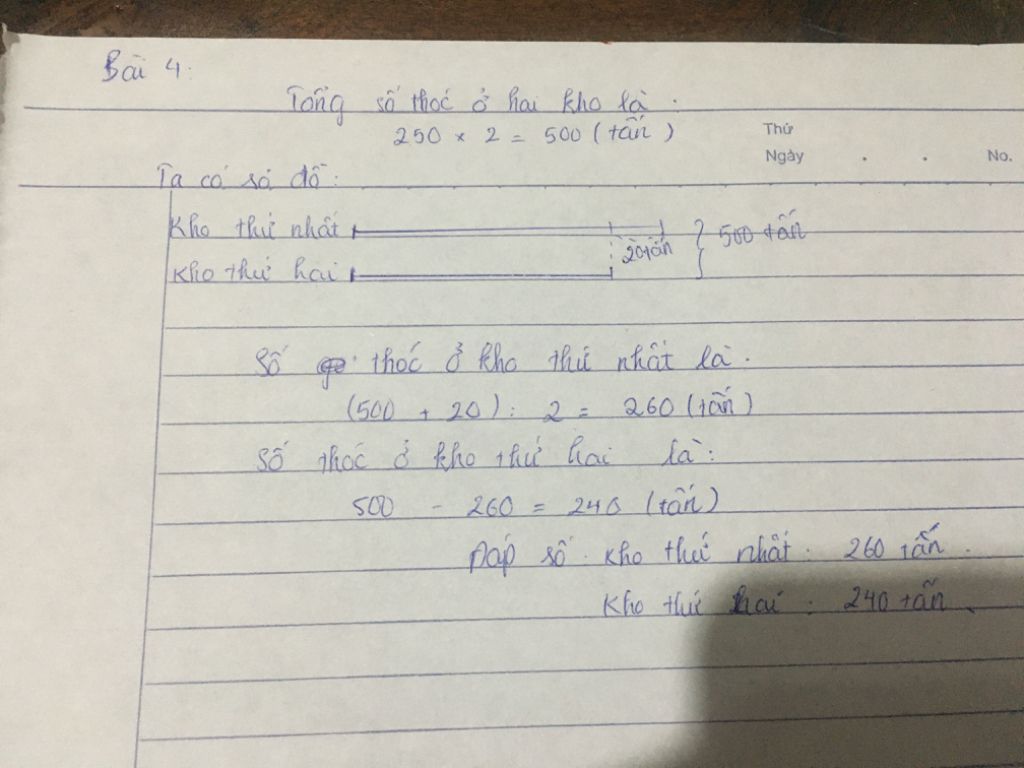 Bài 4:
Tổng số thóc ở hai kho là:
250 x 2 = 500 (tấn)
Thứ
Ngày . . No.
Ta có sơ đồ:
Kho thứ nhất
20 tấn
500 tấn
Kho thứ hai
Số thóc ở kho thứ nhất là:
(500 + 20) : 2 = 260 (tấn)
Số thóc ở kho thứ hai là:
500 - 260 = 240 (tấn)
Đáp số: Kho thứ nhất: 260 tấn.
Kho thứ hai: 240 tấn.